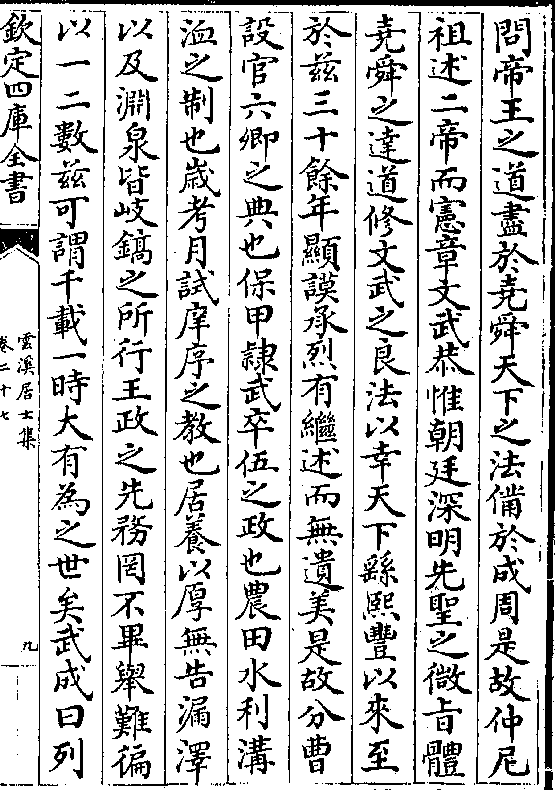 問帝王之道盡於堯舜天下之法備於成周是故仲尼
祖述二帝而憲章文武恭惟朝廷深明先聖之微旨體
堯舜之達道修文武之良法以幸天下繇熙豐以來至
於兹三十餘年顯謨承烈有繼述而無遺美是故分曹
設官六卿之典也保甲隷武卒伍之政也農田水利溝
洫之制也歳考月試庠序之教也居養以厚無告漏澤
以及淵泉皆岐鎬之所行王政之先務罔不畢舉難徧
以一二數兹可謂千載一時大有為之世矣武成曰列
欽定四庫全書
雲溪居士集
卷二十七
九